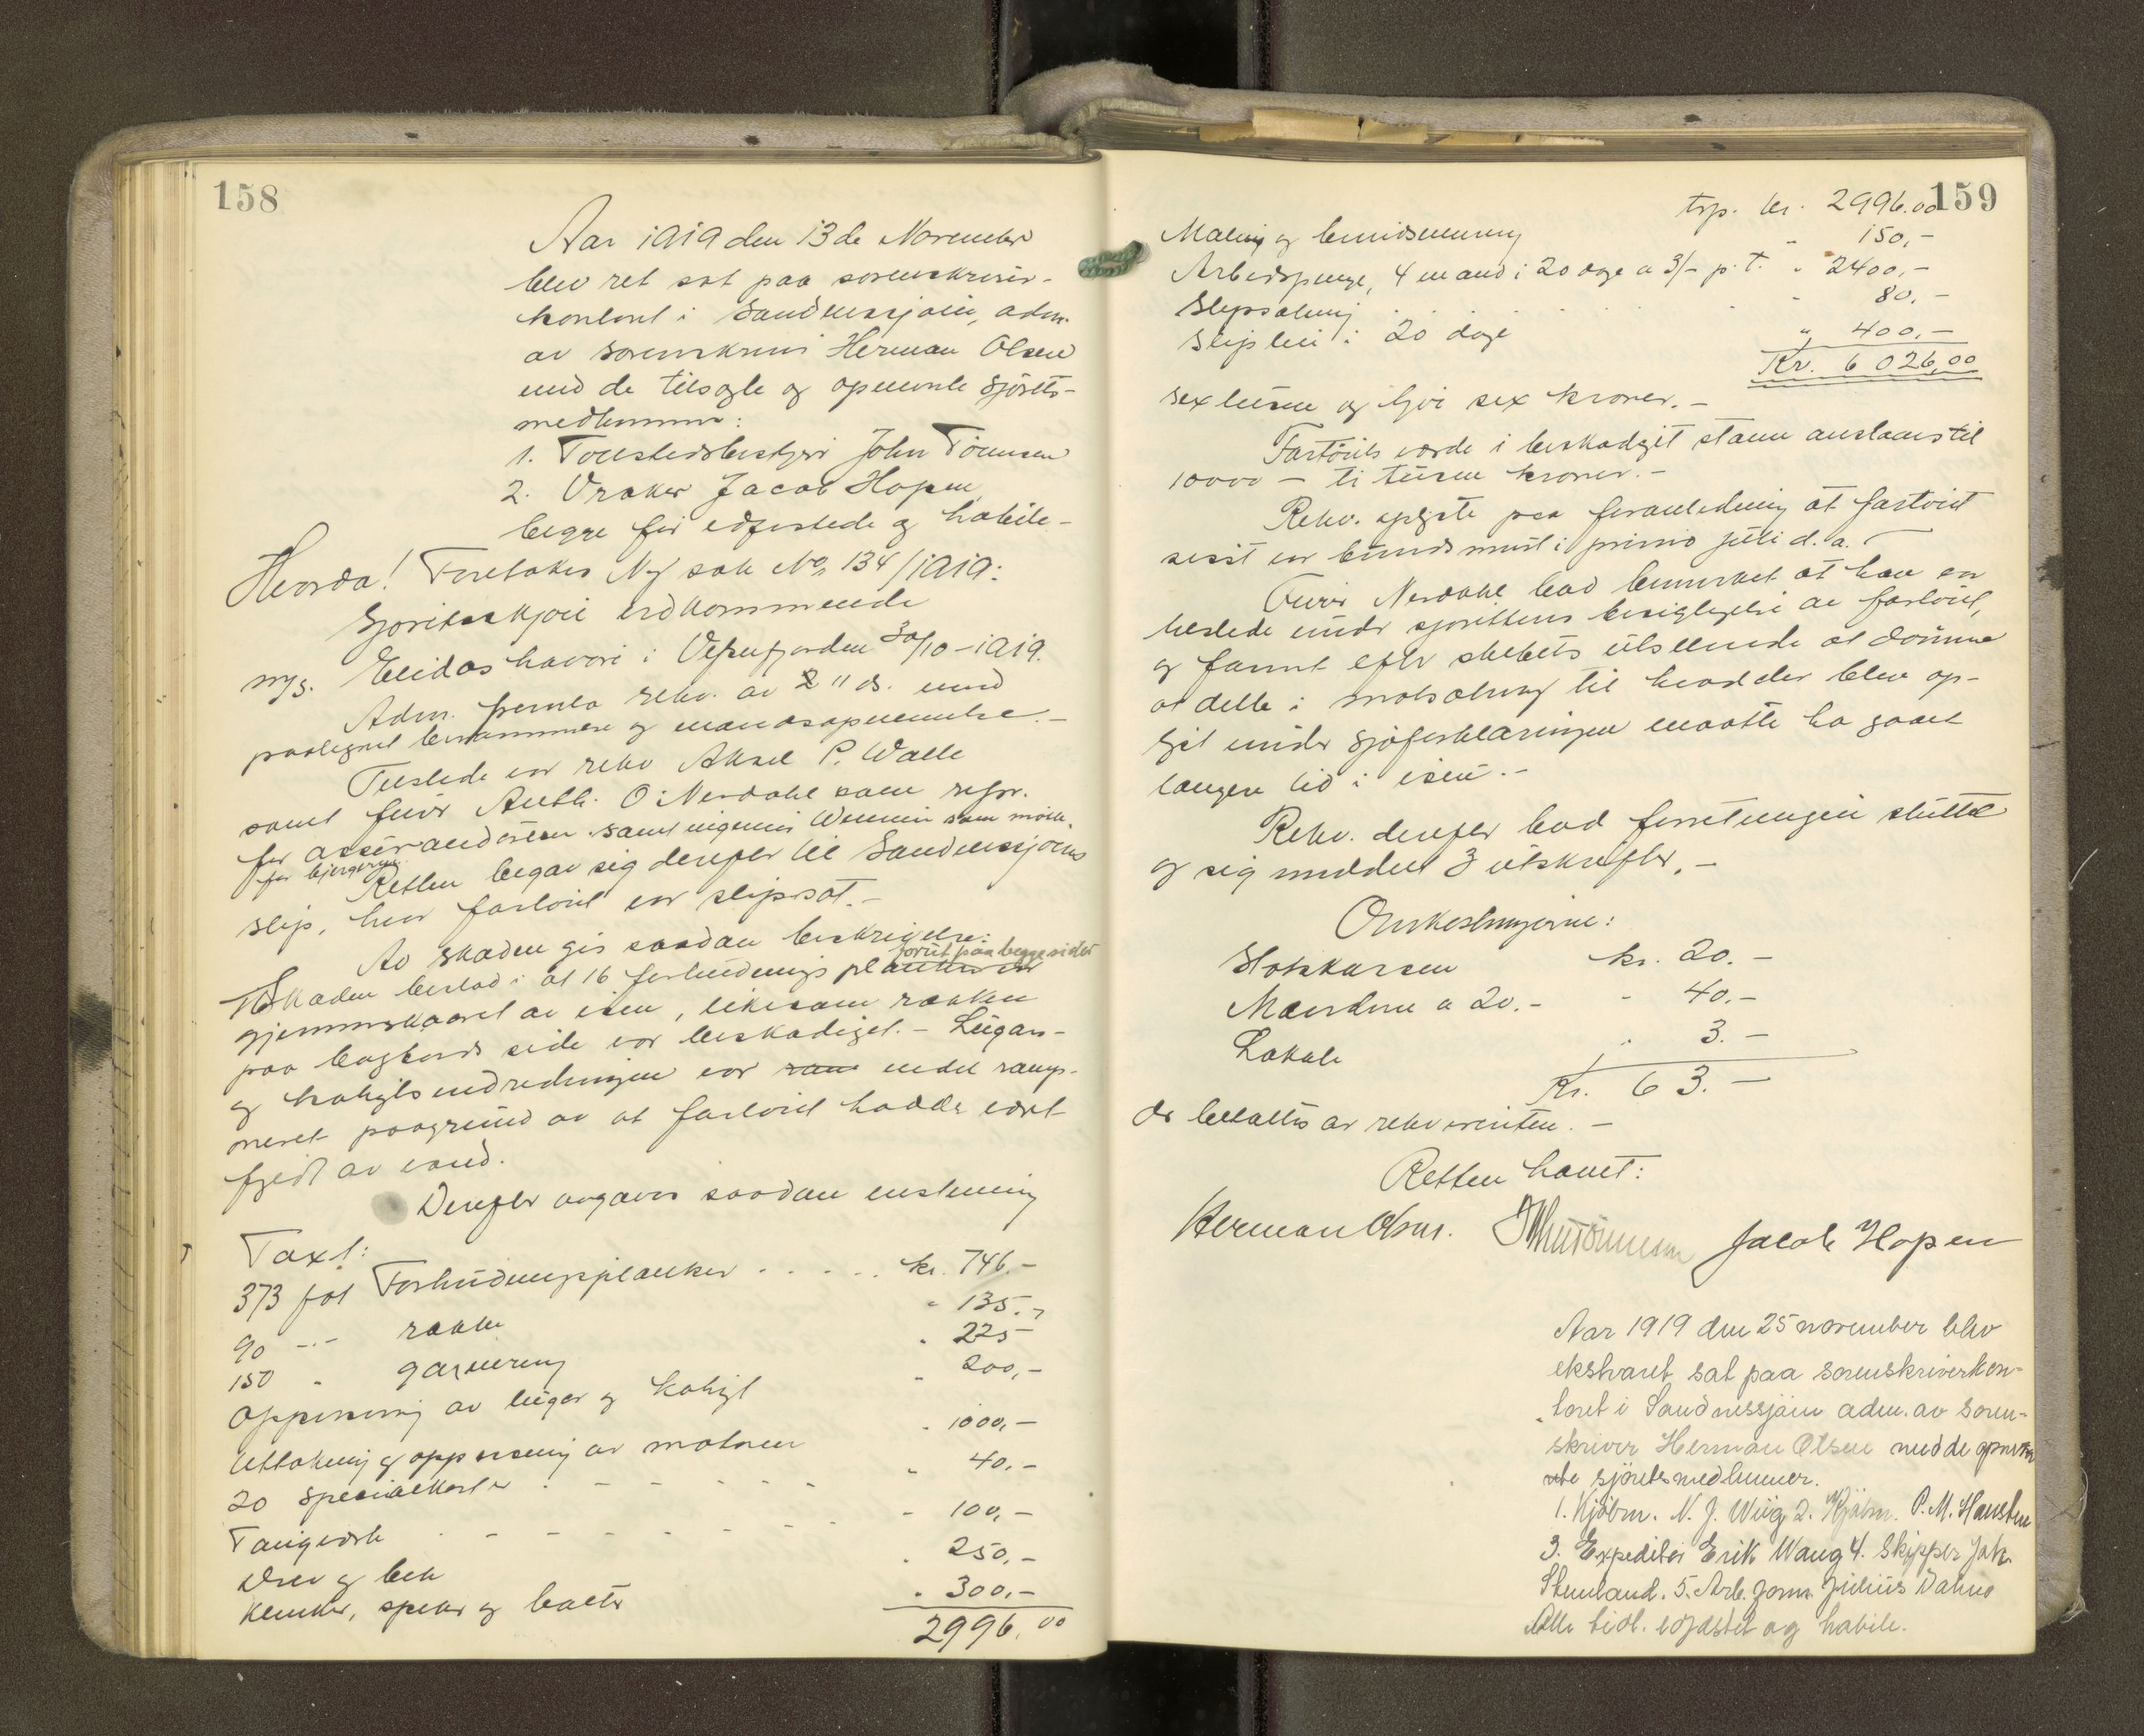 158
Aar 1919 den 13de November
blev ret sat paa sorenskriver-
kontoret i Sandnessjøen, adm.
av sorenskriver Herman Olsen
med de tilsagte og opnevnte sjørets-
medlemmer:
1. Toldstedsbestyrer John Tønnesen
2. Vraker Jacob Hopen
begge før edfestede og habile -
Hvorda! Foretokes Ny sak No 134/1919:
Sjøretsskjøn vedkommende
m/s. Elidas havari i Vefsenfjorden 30/10-1919.
Adm. fremla rekv. av 11 ds. med
paategnet berammelse og mandsopnevnelse. -
Tilstede var rekv Aksel P. Walle
samt fuldm. Anth. O. Nerdahl som repr.
for assurandøren samt ingeniør som
for bjergerne.
Retten begav sig derefter til Sandnessjøens
slip, hvor fartøiet var slipsat. -
Av skaden gis saadan beskrivelse:
forut paa begge sider
Skaden bestod i at 16 forhudnings planker
gjennemskaaret av isen, likesom rakken
paa bagbords side var beskadiget. - Lugar-
og kahytsindredningen var ram endel ramp-
oneret paagrund av at fartøiet hadde vært
fyldt av vand.
Derefter avgaves saadan enstemmig
Taxt:
373 fot Forhudningsplanker . . . . . kr. 746.-
90 -"- rakke " 135.-
150 " garnering " 225-
Oppussing av lugar og kahyt " 200,-
Uttakning og oppussing av motoren " 1000,-
20 specialbolter . - - - - " 40.-
Tangvirke - - - - - - " 100,-
Drev og bek " 250,-
Klinker, spiker og bolter " 300.-
2996.00
159
trp. kr. 2996.00
Maling og bundsmurning " 150,-
Arbeidspenge, 4 mand i 20 dage a 3/- p. t. " 2400,-
Slipsætning " 80.-
Slipleie i 20 dage " 400,-
Kr. 6026,00
sextusen og tyve sex kroner. -
Fartøiets værdi i beskadiget stann anslaaes til
10000 - ti tusen kroner. -
Rekv. oplyste paa foranledning at fartøiet
sisst var bundsmurt i primo juli d. a. -
Fuldm. Nerdahl bad bemerket at han var
tilstede under sjørettens besigtigelse av fartøiet,
og fannt efter skibets utseende at dømme
at dette i motsætning til hvad der blev op-
git under sjøforklaringen maatte ha gaaet
længere tid i isen. -
Rekv. derefter bad forretningen sluttet
og sig meddelt 3 utskrifter. -
Omkostningerne:
Skyskarsen kr. 20. -
Mændene a 20.- " 40.-
Lokale " 3. -
Kr. 63. -
der betaltes av rekvirenten. -
Retten hævet:
Herman Olsen. John Tønnesen Jacob Hopen
Aar 1919 den 25 november blev
ekstraret sat paa sorenskriverkon-
toret i Sandnessjøen adm. av soren-
skriver Herman Olsen med de opnevn-
te sjøretsmedlemmer.
1. Kjøbm. N. J. Wiig 2. Kjøbm. P. M. Hansten
3. Expeditør Erik Waag 4. Skipper Jak.
Stenland. 5. Arb. form. Julius Dahle
Alle tidl. edfæstet og habile.